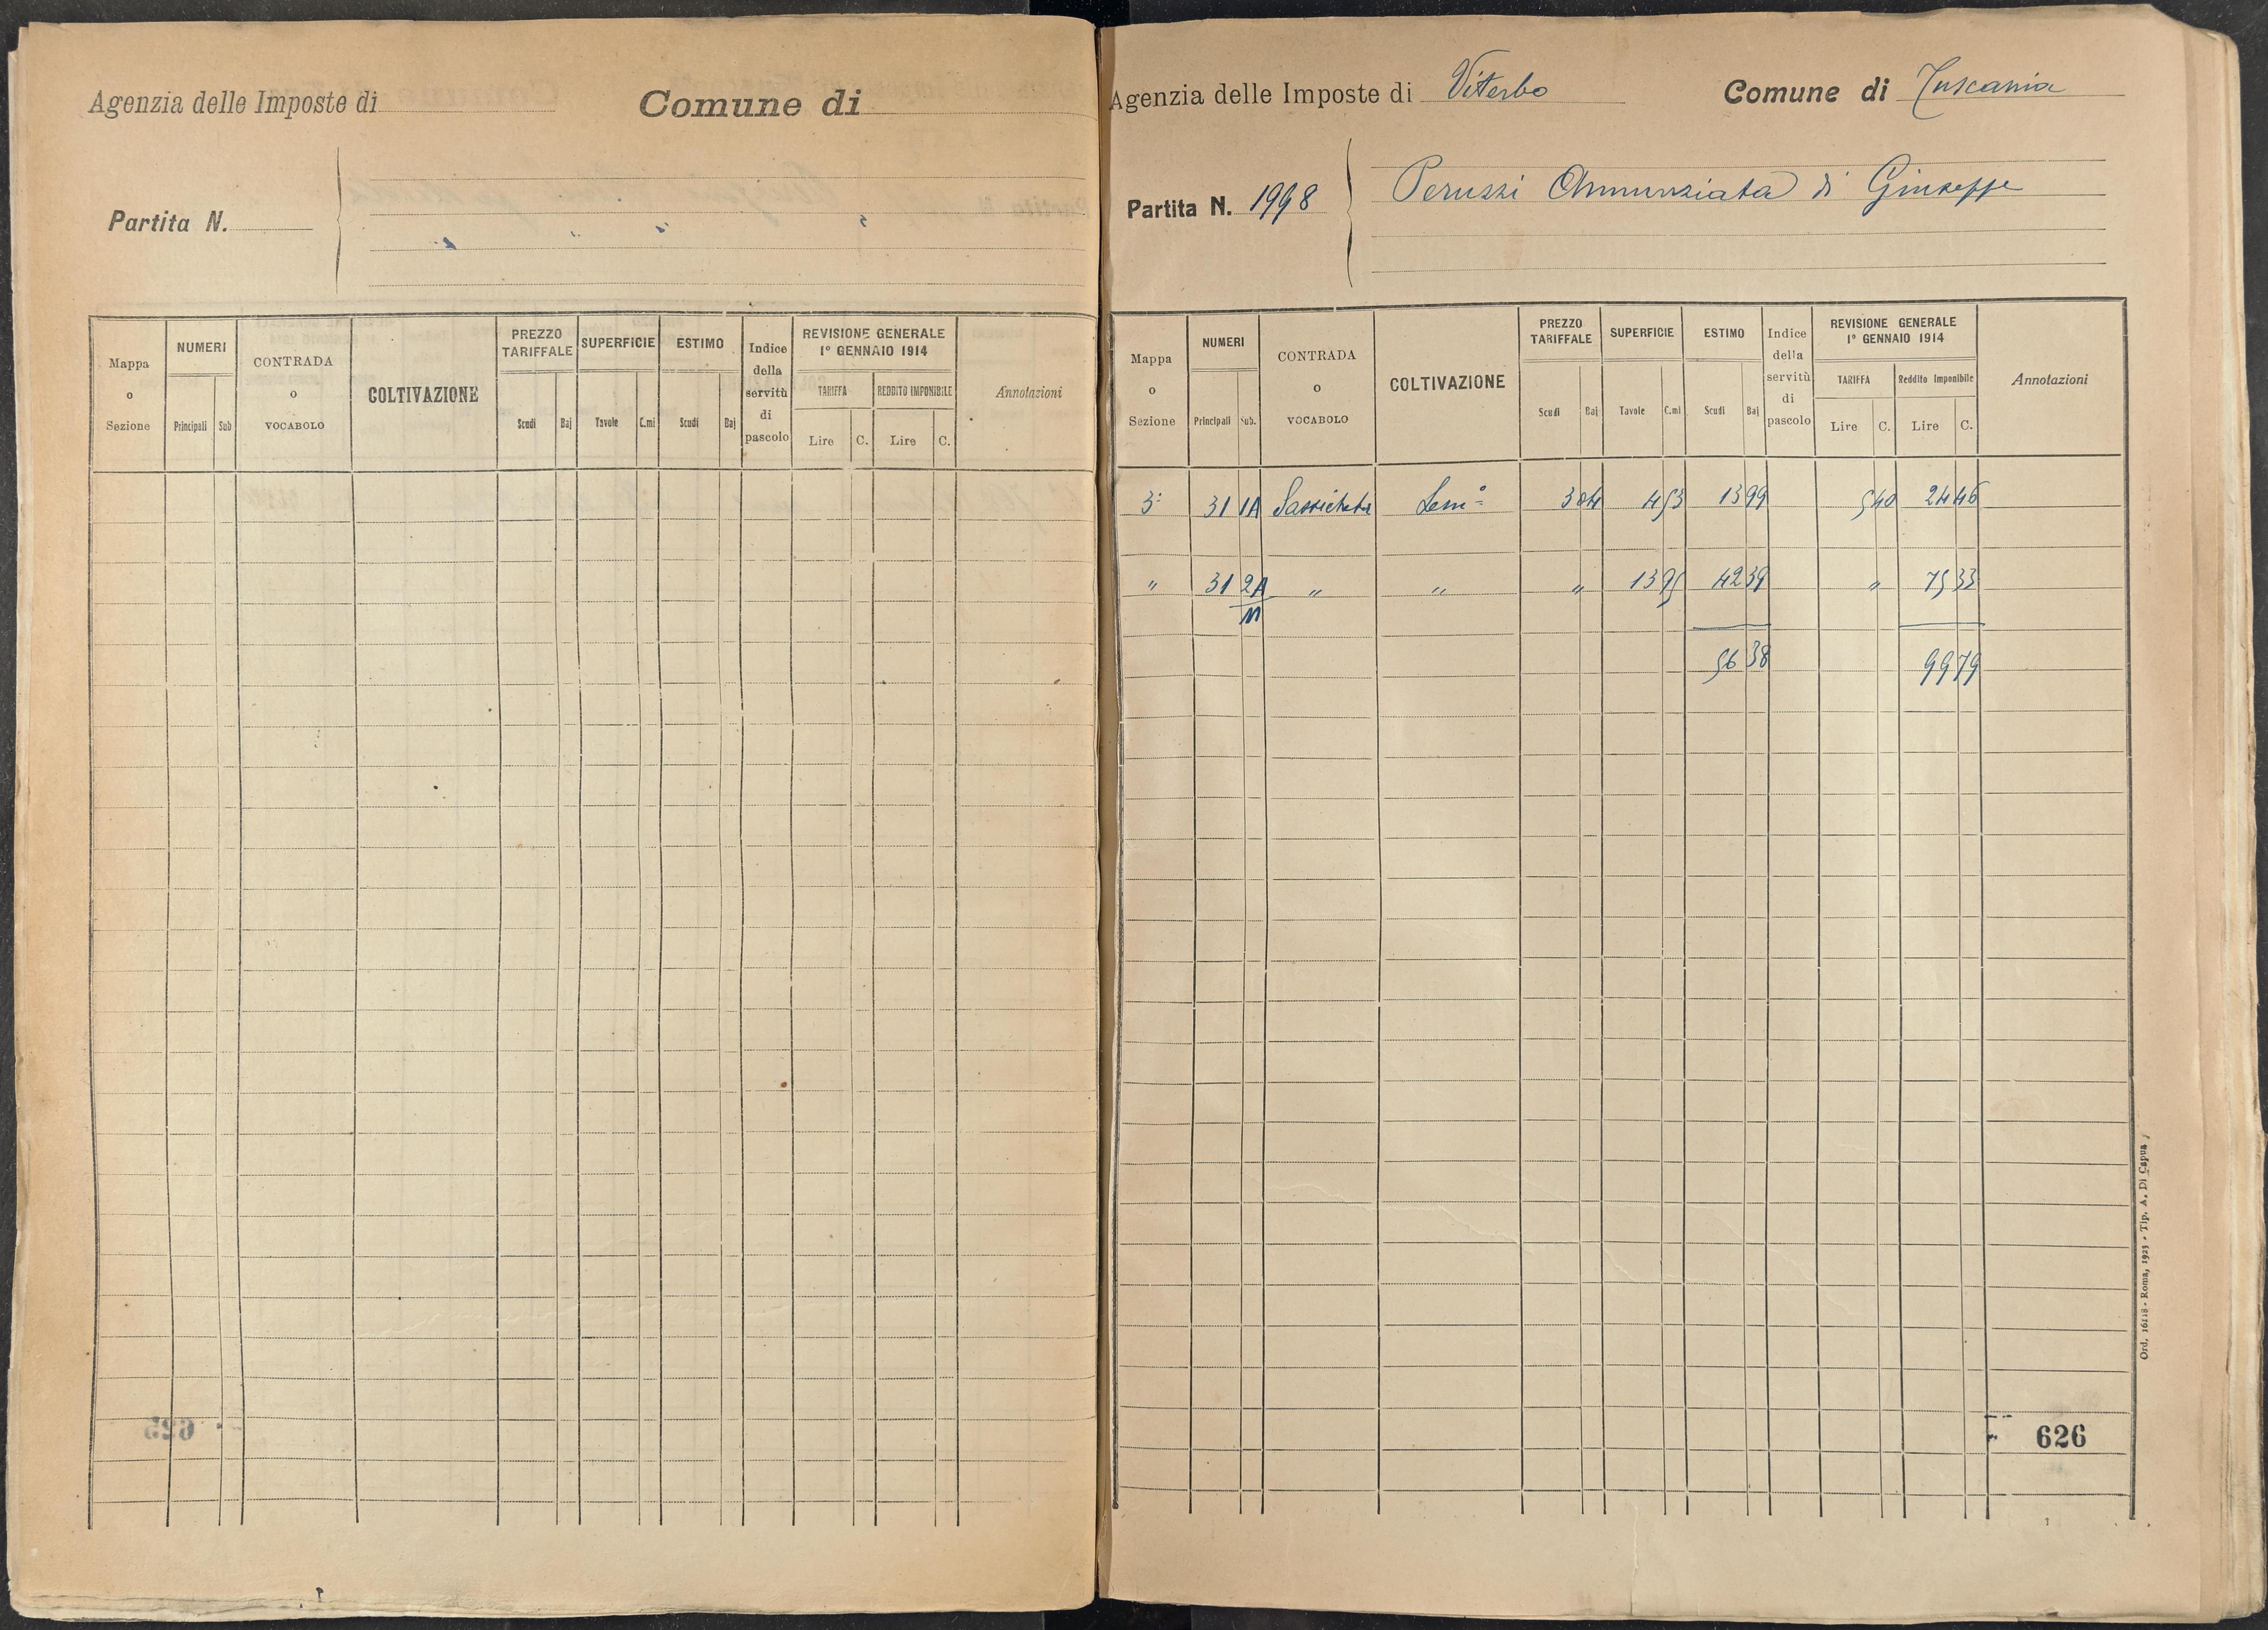 Agenzia delle Imposte di Comune di
Partita N.
Mappa o Sezione NUMERI Principali Sub CONTRADA o VOCABOLO COLTIVAZIONE PREZZO TARIFFALE Scudi Baj SUPERFICIE Tavole C.mi ESTIMO Scudi Baj Indice della servitù di pascolo REVISIONE GENERALE 1° GENNAIO 1914 TARIFFA Lire C. REDDITO IMPONIBILE Lire C. Annotazioni
Agenzia delle Imposte di Viterbo Comune di Tuscania
Partita N. 1998 Peruzzi Annunziata di Giuseppe
Mappa o Sezione NUMERI Principali Sub. CONTRADA o VOCABOLO COLTIVAZIONE PREZZO TARIFFALE Scudi Baj SUPERFICIE Tavole C.mi ESTIMO Scudi Baj Indice della servitù di pascolo REVISIONE GENERALE 1° GENNAIO 1914 TARIFFA Lire C. Reddito Imponibile Lire C. Annotazioni
3ª 31 1A Sem° 3 04 4 53 13 99 5 40 24 46
" 31 2A/11 " " " 13 95 42 39 " 75 33
56 38 99 79
626
Ord. 16118 - Roma, 1925 - Tip. A. Di Capua